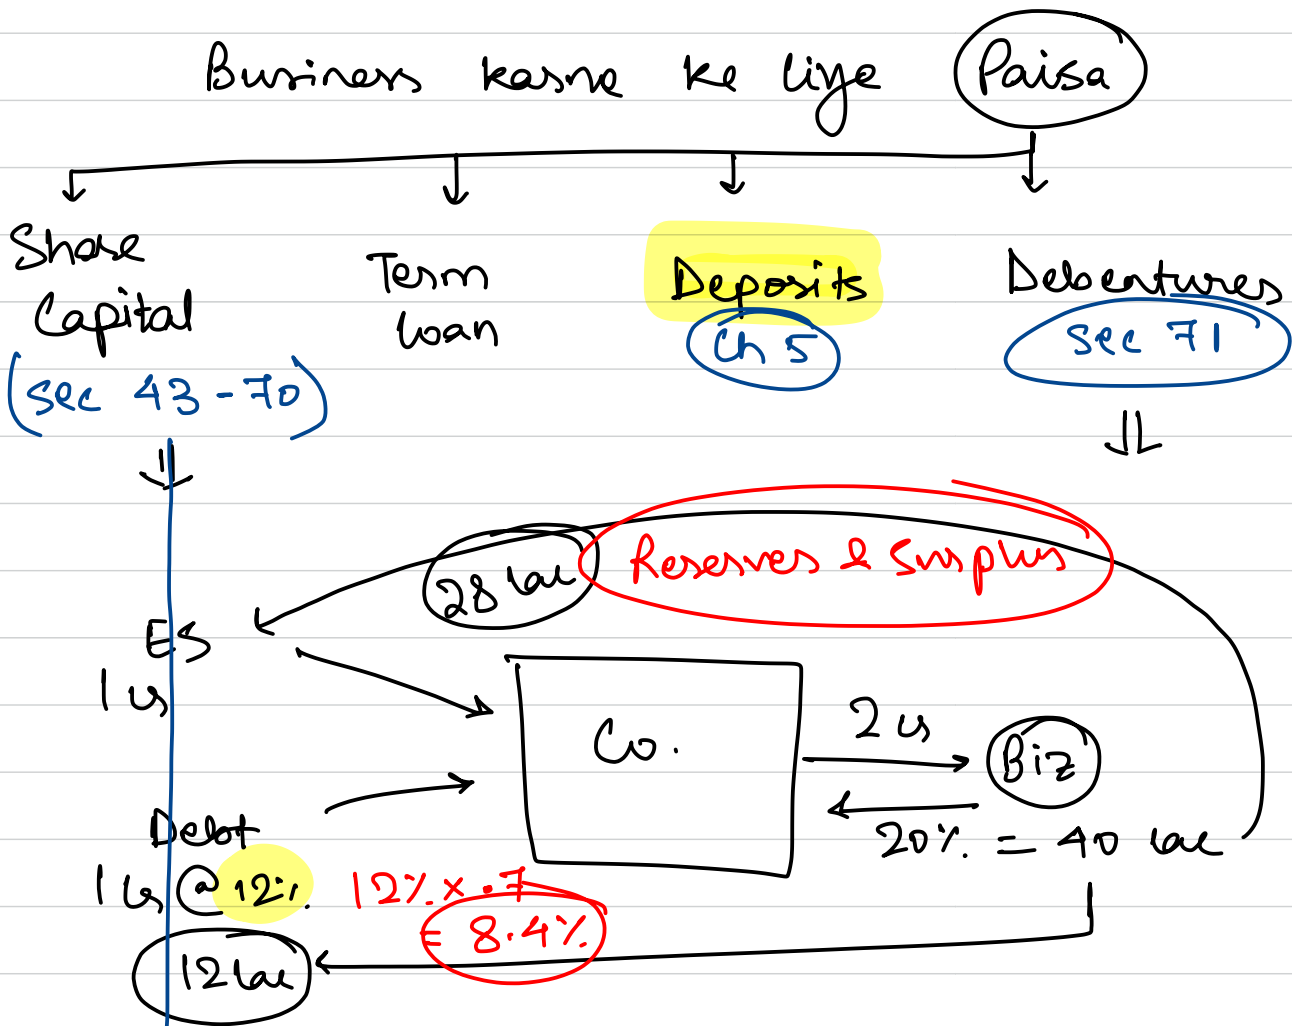 Business karne ke liye Paisa
Share Capital
(Sec 43-70)
Term loan
Deposits
Ch 5
Debentures
Sec 71
28 lac
Reserves & Surplus
ES
1 cr
Co.
2 cr
Biz
20% = 40 lac
Debt
1 cr @ 12%
12% x .7
= 8.4%
12 lac